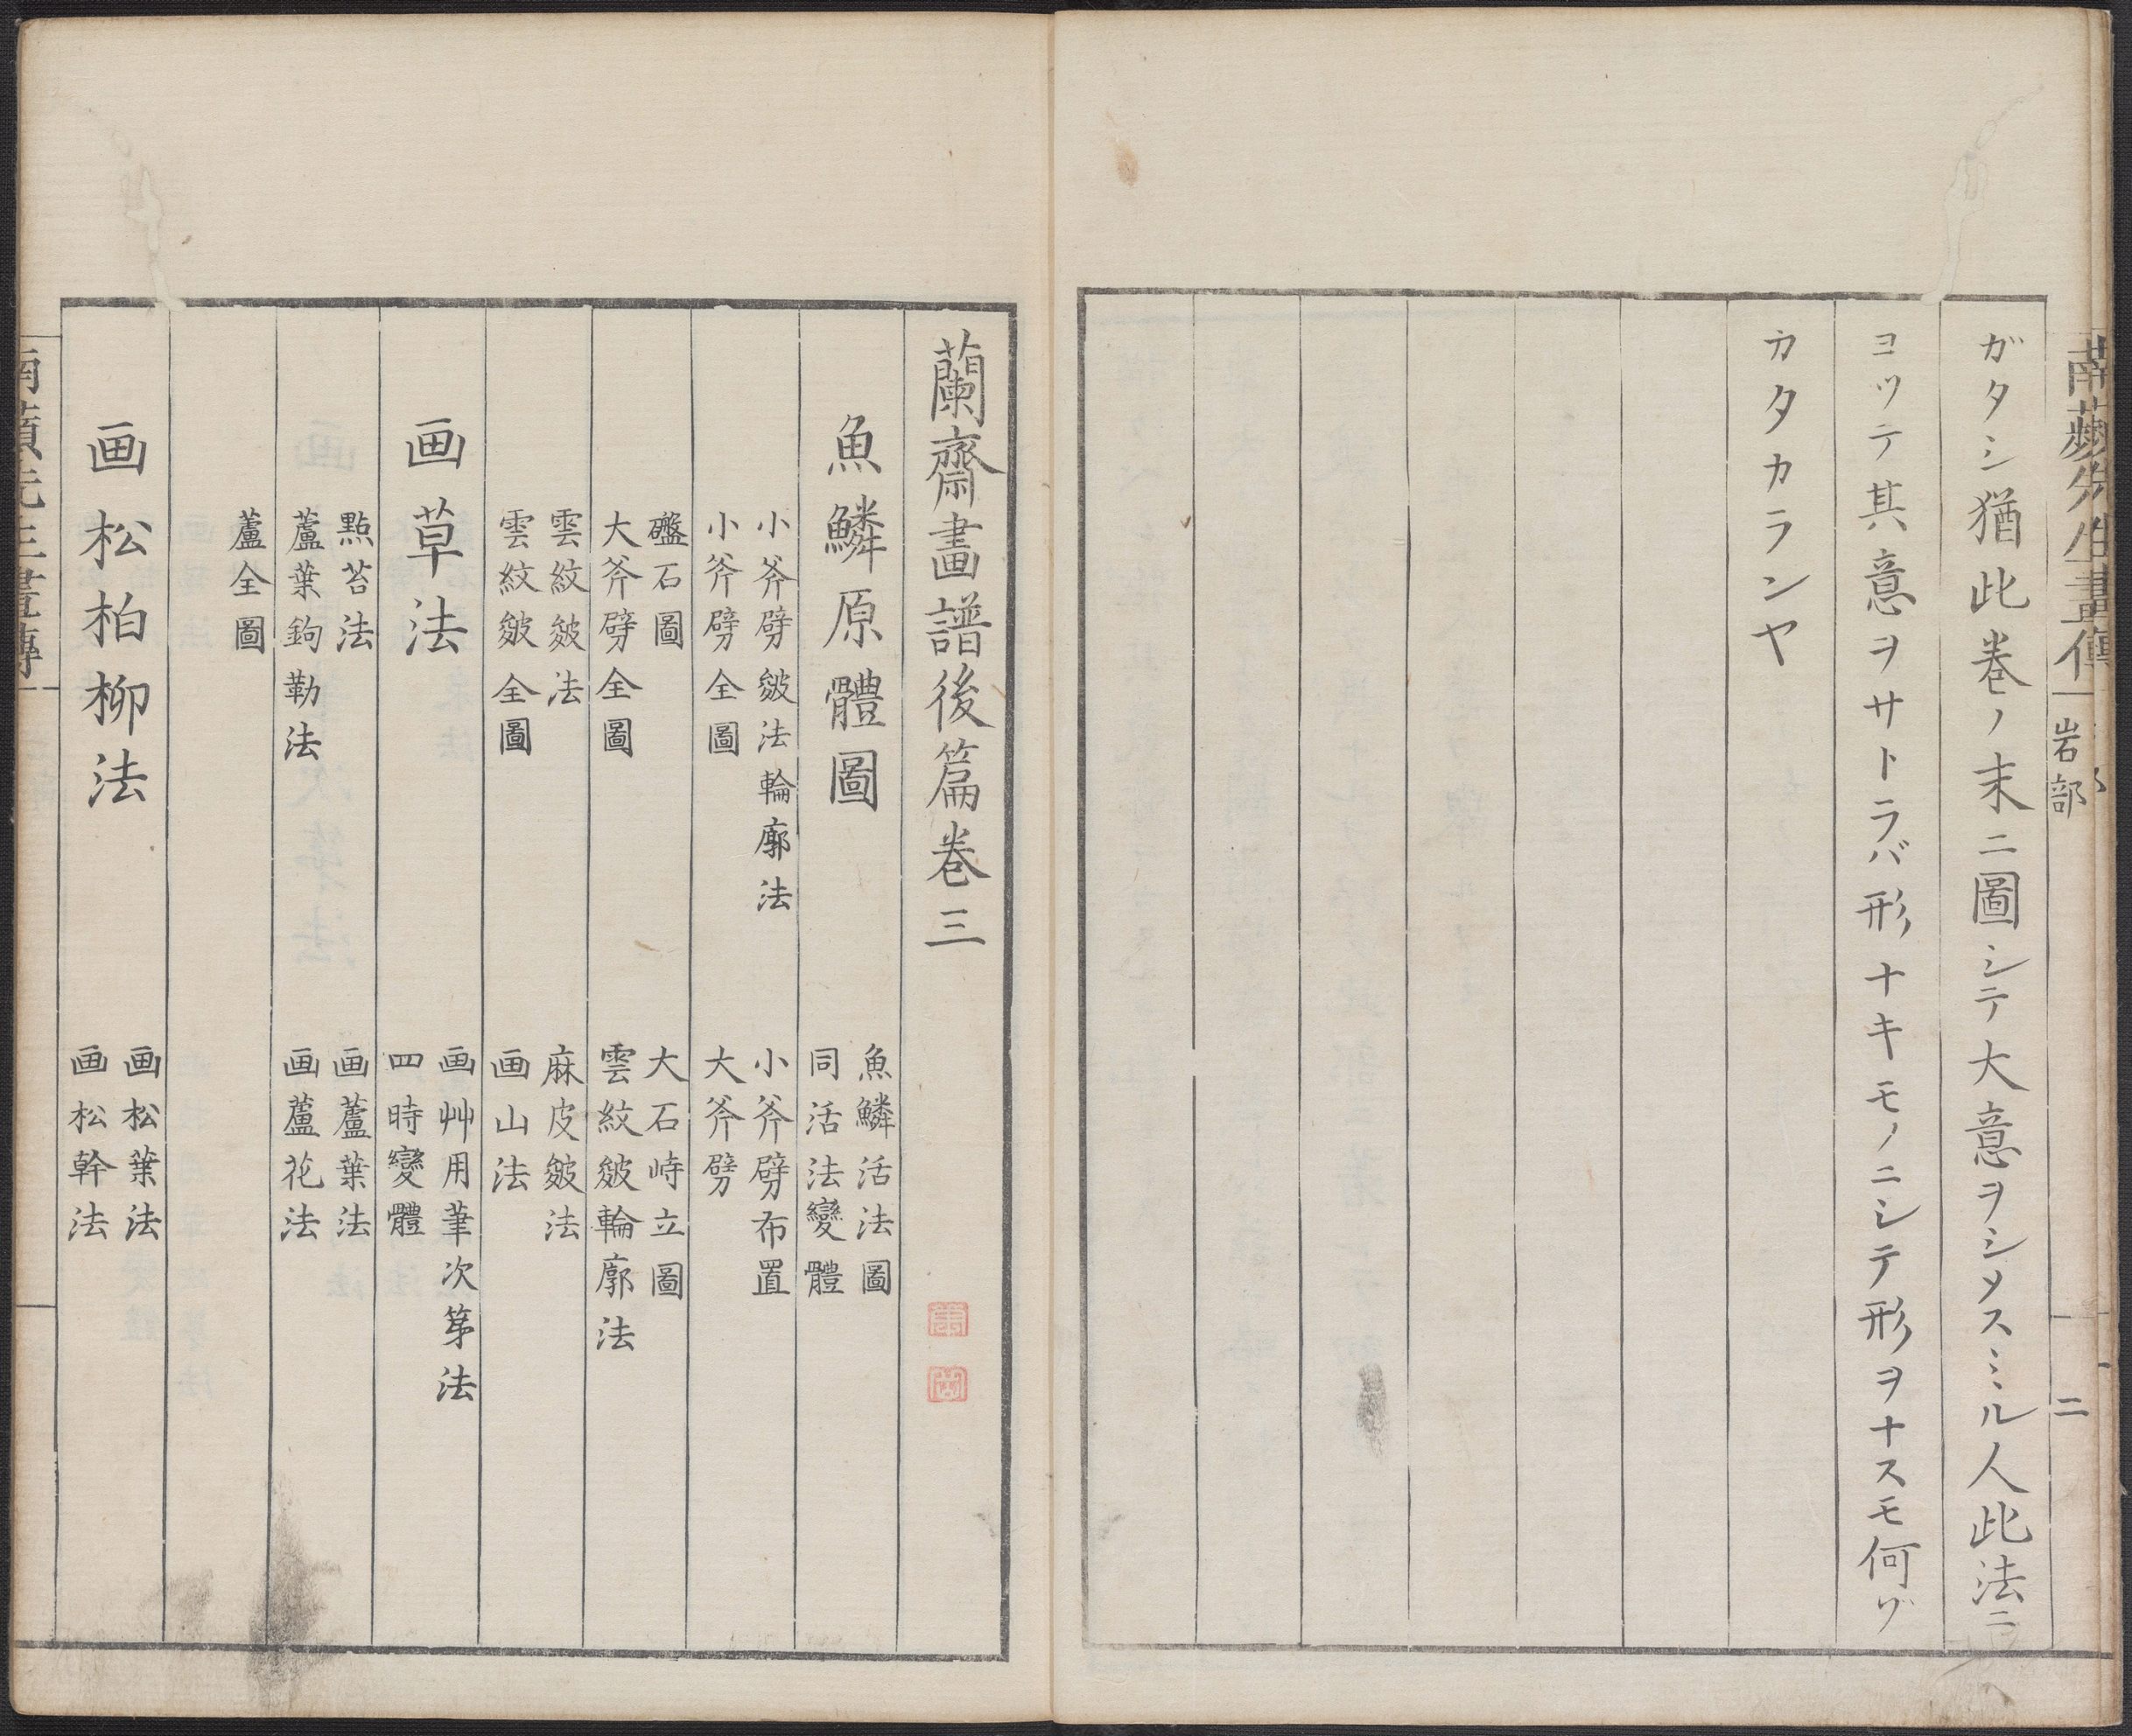 南蘋先生畫傳
岩部
二
ガタシ猶此巻ノ末ニ圖シテ大意ヲシメスミル人此法ニ
ヨツテ其意ヲサトラバ形ナキモノニシテ形ヲナスモ何ゾ
カタカランヤ
蘭齋畫譜後篇巻三
魚鱗原體圖
魚鱗活法圖
同活法變體
小斧劈皴法輪廓法
小斧劈全圖
小斧劈布置
大斧劈
礬石圖
大斧劈全圖
大石峙立圖
雲紋皴輪廓法
雲紋皴法
雲紋皴全圖
麻皮皴法
画山法
画草法
画艸用筆次第法
四時變體
點苔法
蘆葉鉤勒法
画蘆葉法
画蘆花法
蘆全圖
画松柏柳法
画松葉法
画松幹法
南蘋先生畫傳